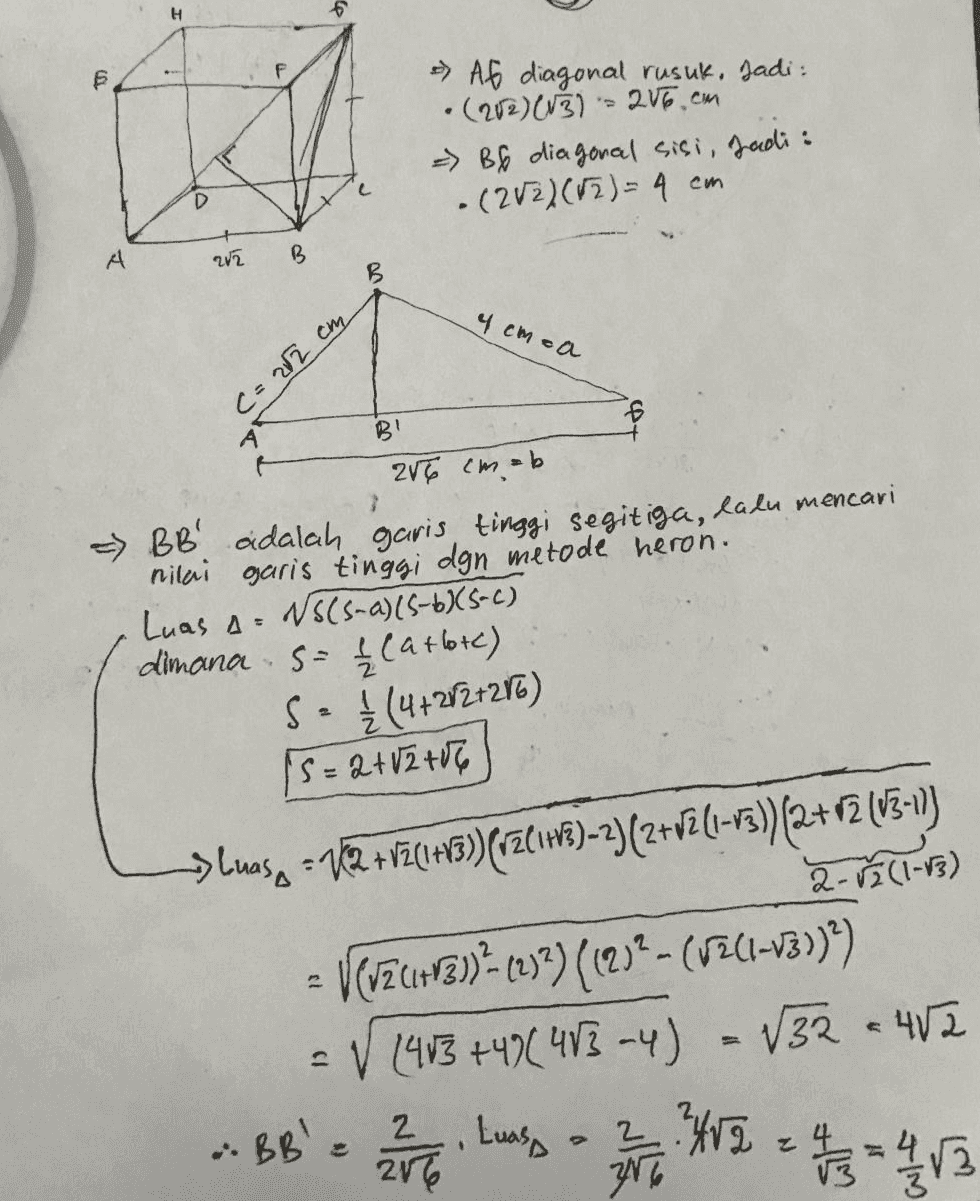 H G
E F
D C
A 2√2 B
⇒ AG diagonal rusuk. Jadi:
• (2√2)(√3) = 2√6 cm
⇒ BG diagonal sisi, Jadi:
• (2√2)(√2) = 4 cm
B
C = 2√2 cm
4 cm = a
A B' G
2√6 cm = b
⇒ BB' adalah garis tinggi segitiga, lalu mencari
nilai garis tinggi dgn metode heron.
Luas Δ = √S(S-a)(S-b)(S-c)
dimana S = 1/2 (a+b+c)
S = 1/2 (4+2√2+2√6)
S = 2+√2+√6
→ Luas Δ = √(2+√2(1+√3))(√2(1+√3)-2)(2+√2(1-√3))(2+√2(√3-1))
2-√2(1-√3)
= √((√2(1+√3))²-(2)²)((2)²-(√2(1-√3))²)
= √(4√3+4)(4√3-4) = √32 = 4√2
∴ BB' = 2/2√6 . Luas Δ = 2/2√6 . ²4√2 = 4/√3 = 4/3 √3